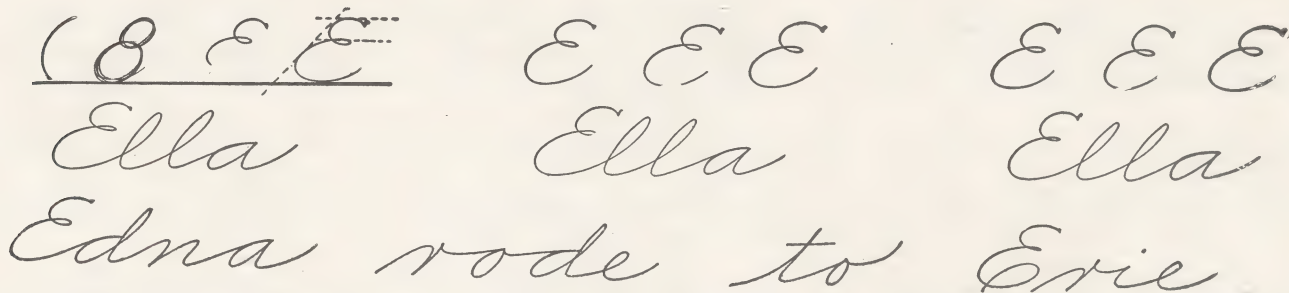 ( 8 E E E E E E E E
Ella Ella Ella
Edna rode to Erie